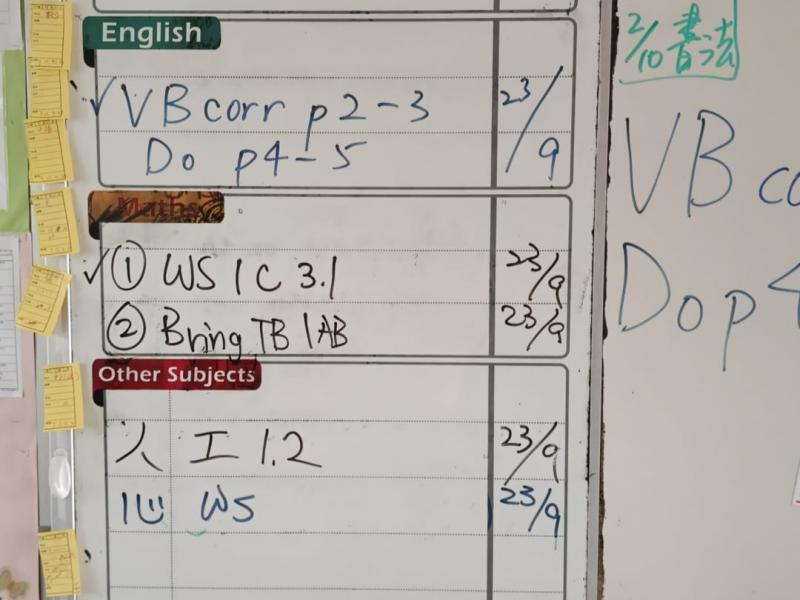 English
✓ VB corr p2-3 23/9
Do p4-5
Maths
✓ ① WS 1C 3.1 23/9
② Bring TB 1AB 23/9
Other Subjects
人 工 1.2 23/9
WS 23/9
2/10 書法
VB co
Do p4